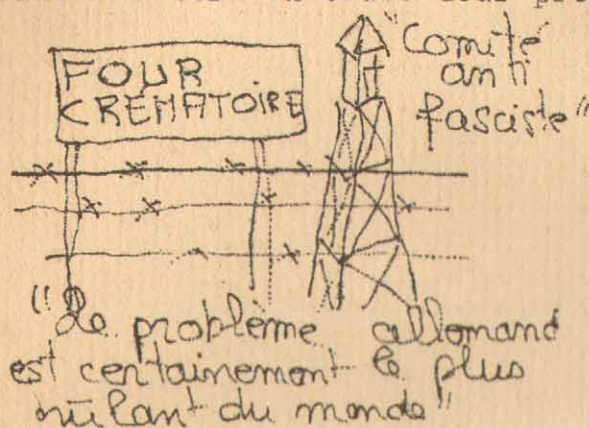 FOUR
CREMATOIRE
"Comité
anti
fasciste"
"Le problème allemand
est certainement le plus
brûlant du monde"